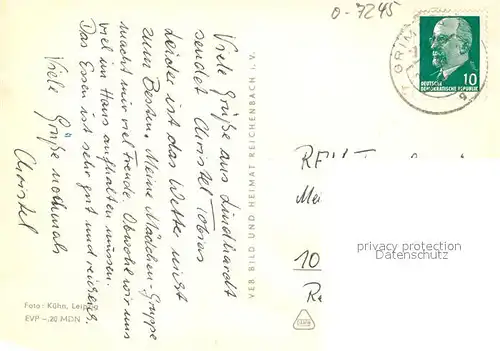 Viele Grüße aus Lindhardt
sendet Christel Tobias
Leider ist das Wetter nicht
zum Besten. Meine Mädchen-Gruppe
macht mir viel Freude. Obwohl wir uns
viel im Haus aufhalten müssen.
Das Essen ist sehr gut und reichlich.
Viele Grüße nochmals
Christel
Foto: Kühn, Leipzig
EVP -,20 MDN
VEB BILD UND HEIMAT REICHENBACH i. V.
0-7245
GRIM
10
DEUTSCHE
DEMOKRATISCHE REPUBLIK
10
privacy protection
Datenschutz